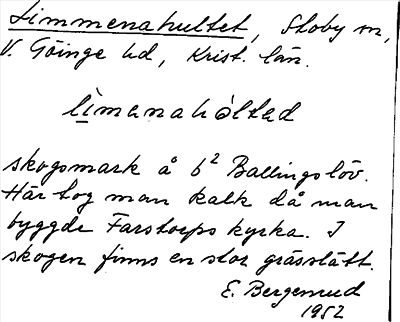 Limmenahultet, Stoby sn,
V. Göinge hd, Krist. län.
limanahòltad
skogsmark å b² Ballingslöv.
Här tog man kalk då man
byggde Farstorps kyrka. I
skogen finns en stor grässlätt.
E. Bergenrud
1952